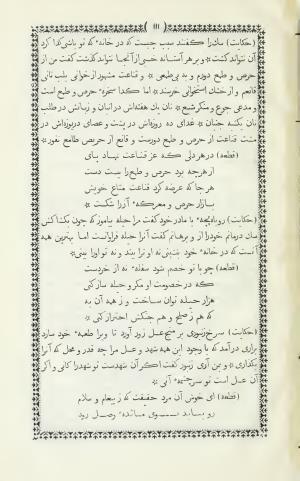 ۱۱۱
(حکایت) سگ را گفتند سبب چیست که در خانه که تو باشی گدا گرد
آن نتواند گشت * و بر هر آستانه خسی از آنجا نتواند گذشت گفت من از
حرص و طمع دورم و به بی طمعی * و قناعت مشهور از خوانی بلب نانی
قانعم و از خشک استخوانی خرسند * اما گدا سخره حرص و طمع است
و مدعی جوع و منکر شبع * نان یک هفته‌اش در انبان و زبانش در طلب
نان یکشبه جنبان * غذای ده روزه‌اش در پشت و عصای دریوزه‌اش در
مشت قناعت از حرص و طمع دورست و قانع از حریص طامع نفور *
(قطعه) در هر دلی که عز قناعت نهاد پای
از هر چه بود حرص و طمع را ببست دست
هر جا که عرضه کرد قناعت متاع خویش
بازار حرص و معرکه آز را شکست *
(حکایت) روباه بچه با مادر خود گفت مرا حیله بیاموز که چون بکشاکش
سگ درمانم خود را از و برهانم گفت آنرا حیله فراوانست اما بهترین همه
آنست که در خانه خود بنشینی نه او ترا بیند و نه تو او را بینی *
(قطعه) چو با تو خصم شود سفله نه از خردست
که در خصومت او مکر و حیله ساز کنی
هزار حیله توان ساخت و ز همه آن به
که هم ز صلح و هم جنگش احتراز کنی *
(حکایت) سرخ زنبوری بر مگس عسل زور آورد تا ویرا طعمه خود سازد
بزاری در آمد که با وجود این همه شهد و عسل مرا چه قدر و محل که آنرا
بگذاری * و بمن آری زنبور گفت اگر آن شهدست تو شهد را کانی و اگر
آن عسل است تو سرچشمه آنی *
(قطعه) ای خوش آن مرد حقیقت که ز پیغام و سلام
رو بتابد بسوی مائده وصل رود